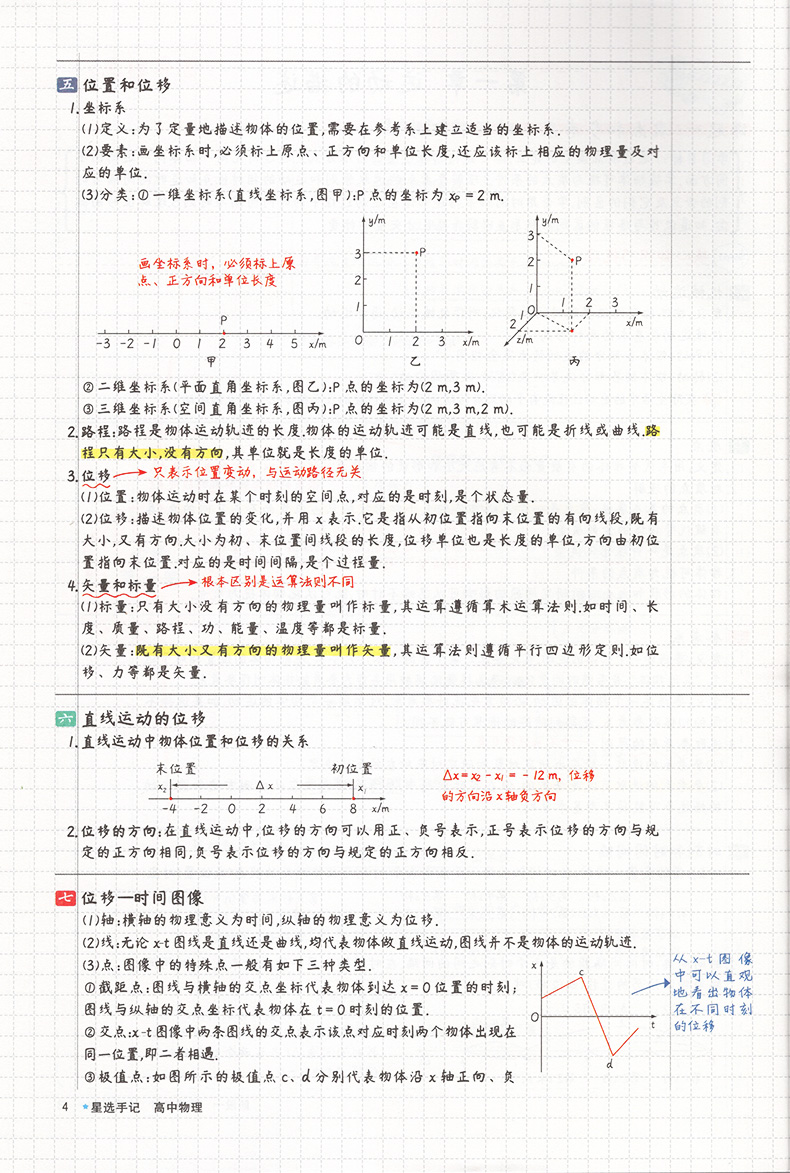 五 位置和位移
1.坐标系
(1)定义:为了定量地描述物体的位置,需要在参考系上建立适当的坐标系.
(2)要素:画坐标系时,必须标上原点、正方向和单位长度,还应该标上相应的物理量及对
应的单位.
(3)分类:①一维坐标系(直线坐标系,图甲):P点的坐标为 xP = 2 m.
画坐标系时,必须标上原
点、正方向和单位长度
P
-3 -2 -1 0 1 2 3 4 5 x/m
甲
y/m
3 P
2
1
0 1 2 3 x/m
乙
y/m
3
2 P
1
O 1 2 3
1
2
x/m
z/m
丙
②二维坐标系(平面直角坐标系,图乙):P点的坐标为(2 m,3 m).
③三维坐标系(空间直角坐标系,图丙):P点的坐标为(2 m,3 m,2 m).
2.路程:路程是物体运动轨迹的长度.物体的运动轨迹可能是直线,也可能是折线或曲线.路
程只有大小,没有方向,其单位就是长度的单位.
3.位移 只表示位置变动,与运动路径无关
(1)位置:物体运动时在某个时刻的空间点,对应的是时刻,是个状态量.
(2)位移:描述物体位置的变化,并用 x 表示.它是指从初位置指向末位置的有向线段,既有
大小,又有方向.大小为初、末位置间线段的长度,位移单位也是长度的单位,方向由初位
置指向末位置.对应的是时间间隔,是个过程量.
4.矢量和标量 根本区别是运算法则不同
(1)标量:只有大小没有方向的物理量叫作标量,其运算遵循算术运算法则.如时间、长
度、质量、路程、功、能量、温度等都是标量.
(2)矢量:既有大小又有方向的物理量叫作矢量,其运算法则遵循平行四边形定则.如位
移、力等都是矢量.
六 直线运动的位移
1.直线运动中物体位置和位移的关系
末位置 初位置
x2 Δx x1
-4 -2 0 2 4 6 8 x/m
Δx = x2 - x1 = - 12 m, 位移
的方向沿x轴负方向
2.位移的方向:在直线运动中,位移的方向可以用正、负号表示,正号表示位移的方向与规
定的正方向相同,负号表示位移的方向与规定的正方向相反.
七 位移—时间图像
(1)轴:横轴的物理意义为时间,纵轴的物理意义为位移.
(2)线:无论 x-t 图线是直线还是曲线,均代表物体做直线运动,图线并不是物体的运动轨迹.
(3)点:图像中的特殊点一般有如下三种类型.
①截距点:图线与横轴的交点坐标代表物体到达 x=0 位置的时刻;
图线与纵轴的交点坐标代表物体在 t=0 时刻的位置.
②交点:x-t 图像中两条图线的交点表示该点对应时刻两个物体出现在
同一位置,即二者相遇.
③极值点:如图所示的极值点 c、d 分别代表物体沿 x 轴正向、负
x
c
O
t
d
从 x-t 图像
中可以直观
地看出物体
在不同时刻
的位移
4 星选手记 高中物理